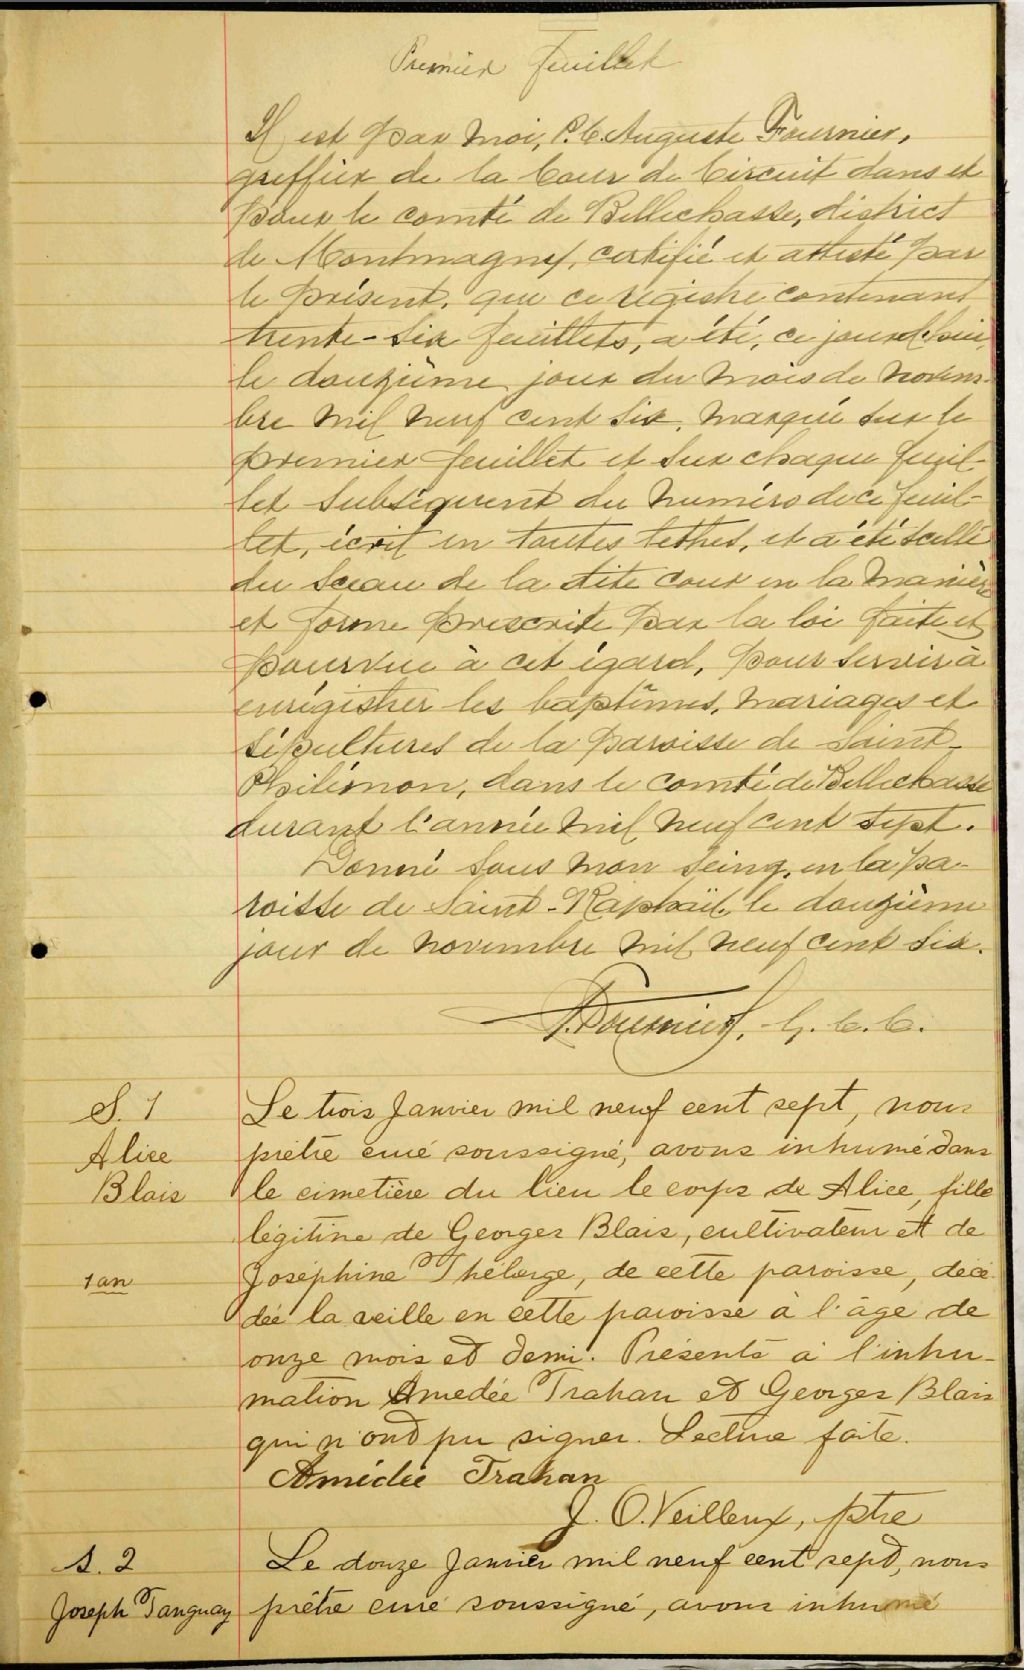 Premier feuillet
Il est par moi, P.C. Auguste Fournier,
greffier de la Cour de Circuit dans et
pour le comté de Bellechasse, district
de Montmagny, certifié et attesté par
le présent, que ce régistre contenant
trente-six feuillets, a été, ce jourd'hui,
le douzième jour du mois de novem-
bre mil neuf cent six, marqué sur le
premier feuillet et sur chaque feuil-
let subséquent du numéro de ce feuil-
let, écrit en toutes lettres, et a été scellé
du sceau de la dite cour en la manière
et forme prescrite par la loi faite et
pourvue à cet égard, pour servir à
enrégistrer les baptêmes, mariages et
sépultures de la paroisse de Saint-
Philémon, dans le comté de Bellechasse
durant l'année mil neuf cent sept.
Donné sous mon seing, en la pa-
roisse de Saint-Raphaël, le douzième
jour de novembre mil neuf cent six.
Fournier, G. C. C.
S. 1
Alice
Blais
1 an
Le trois Janvier mil neuf cent sept, nous
prêtre curé soussigné, avons inhumé dans
le cimetière du lieu le corps de Alice, fille
légitime de Georges Blais, cultivateur et de
Joséphine Théberge, de cette paroisse, décé-
dée la veille en cette paroisse à l'âge de
onze mois et demi. Présents à l'inhu-
mation Amedée Trahan et Georges Blais
qui n'ont pu signer. Lecture faite.
Amédée Trahan
J. O. Veilleux, ptre
S. 2
Joseph Tanguay
Le douze Janvier mil neuf cent sept, nous
prêtre curé soussigné, avons inhumé